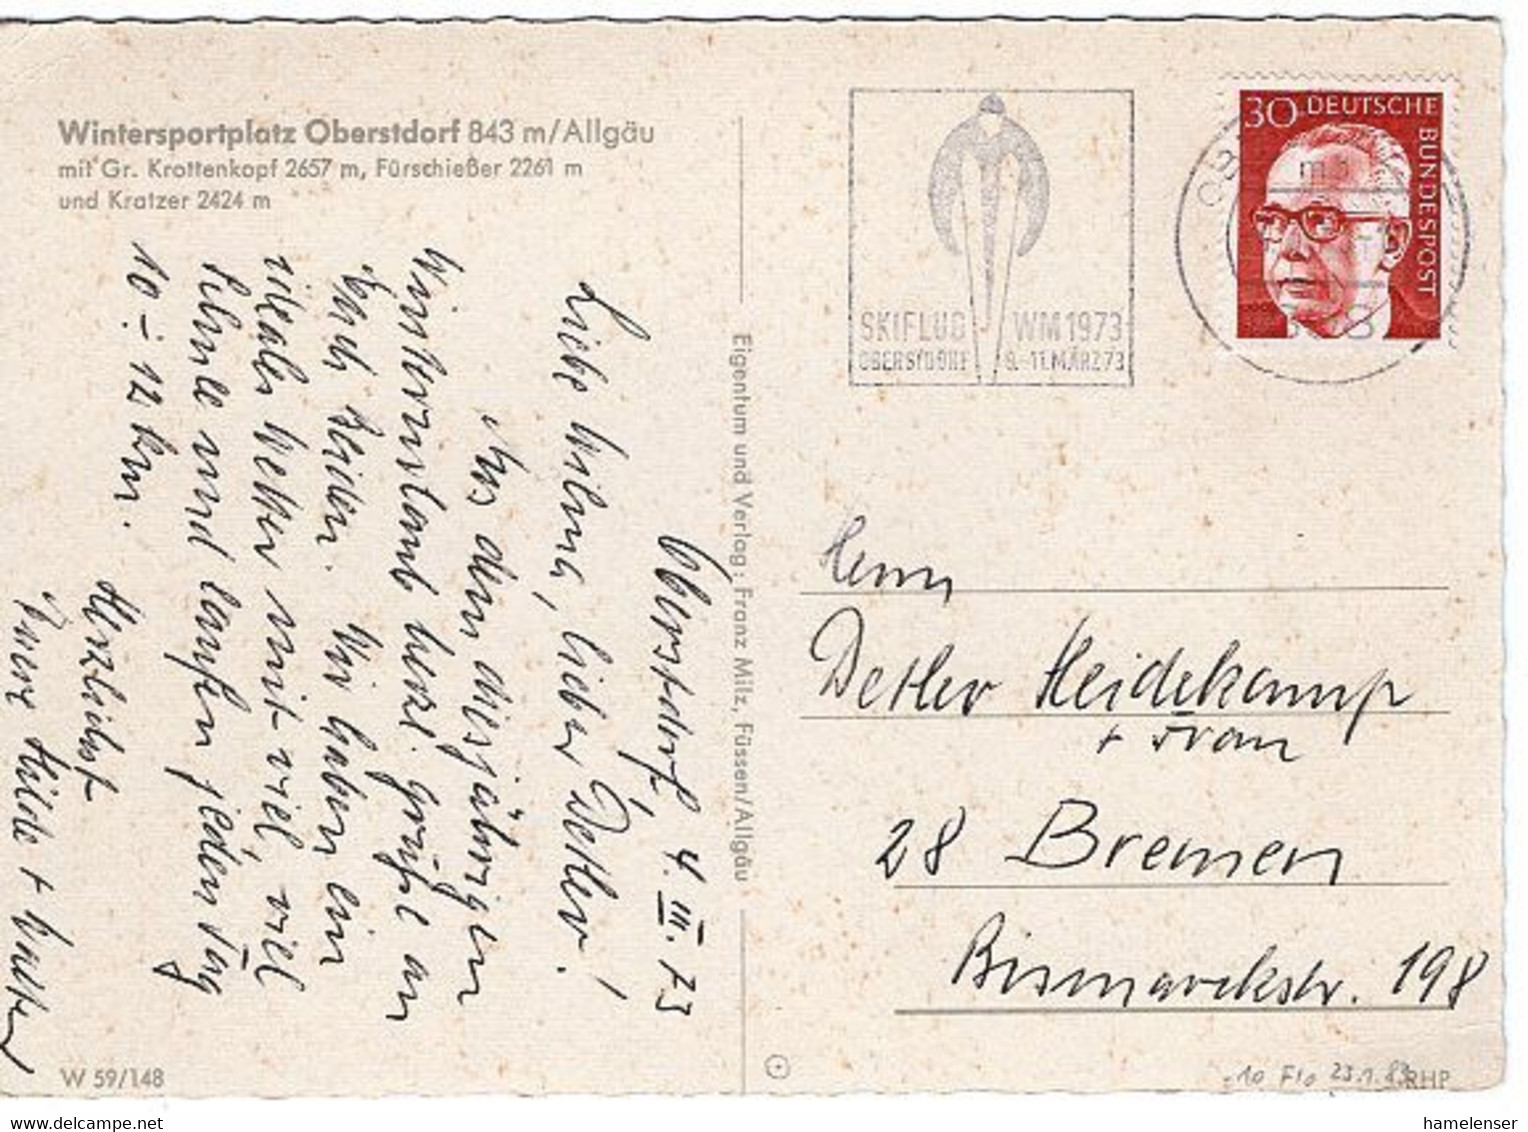 Wintersportplatz Oberstdorf 843 m/Allgäu
mit Gr. Krottenkopf 2657 m, Fürschießer 2261 m
und Kratzer 2424 m
Oberstdorf, 4. III. 73
Liebe Wilma, lieber Detlev!
Aus dem diesjährigen
Winterurlaub herzl. Grüße an
Euch beiden. Wir haben ein
ideales Wetter mit viel, viel
Schnee und laufen jeden Tag
10 - 12 km.
Herzlichst
Eure Hilde + Walter
W 59/148
Eigentum und Verlag: Franz Milz, Füssen/Allgäu
SKIFLUG WM 1973
OBERSTDORF 9.-11. MÄRZ 73
30 DEUTSCHE BUNDESPOST
Herrn
Detlev Heidekamp
+ Frau
28 Bremen
Bismarckstr. 198
RHP
hamelenser